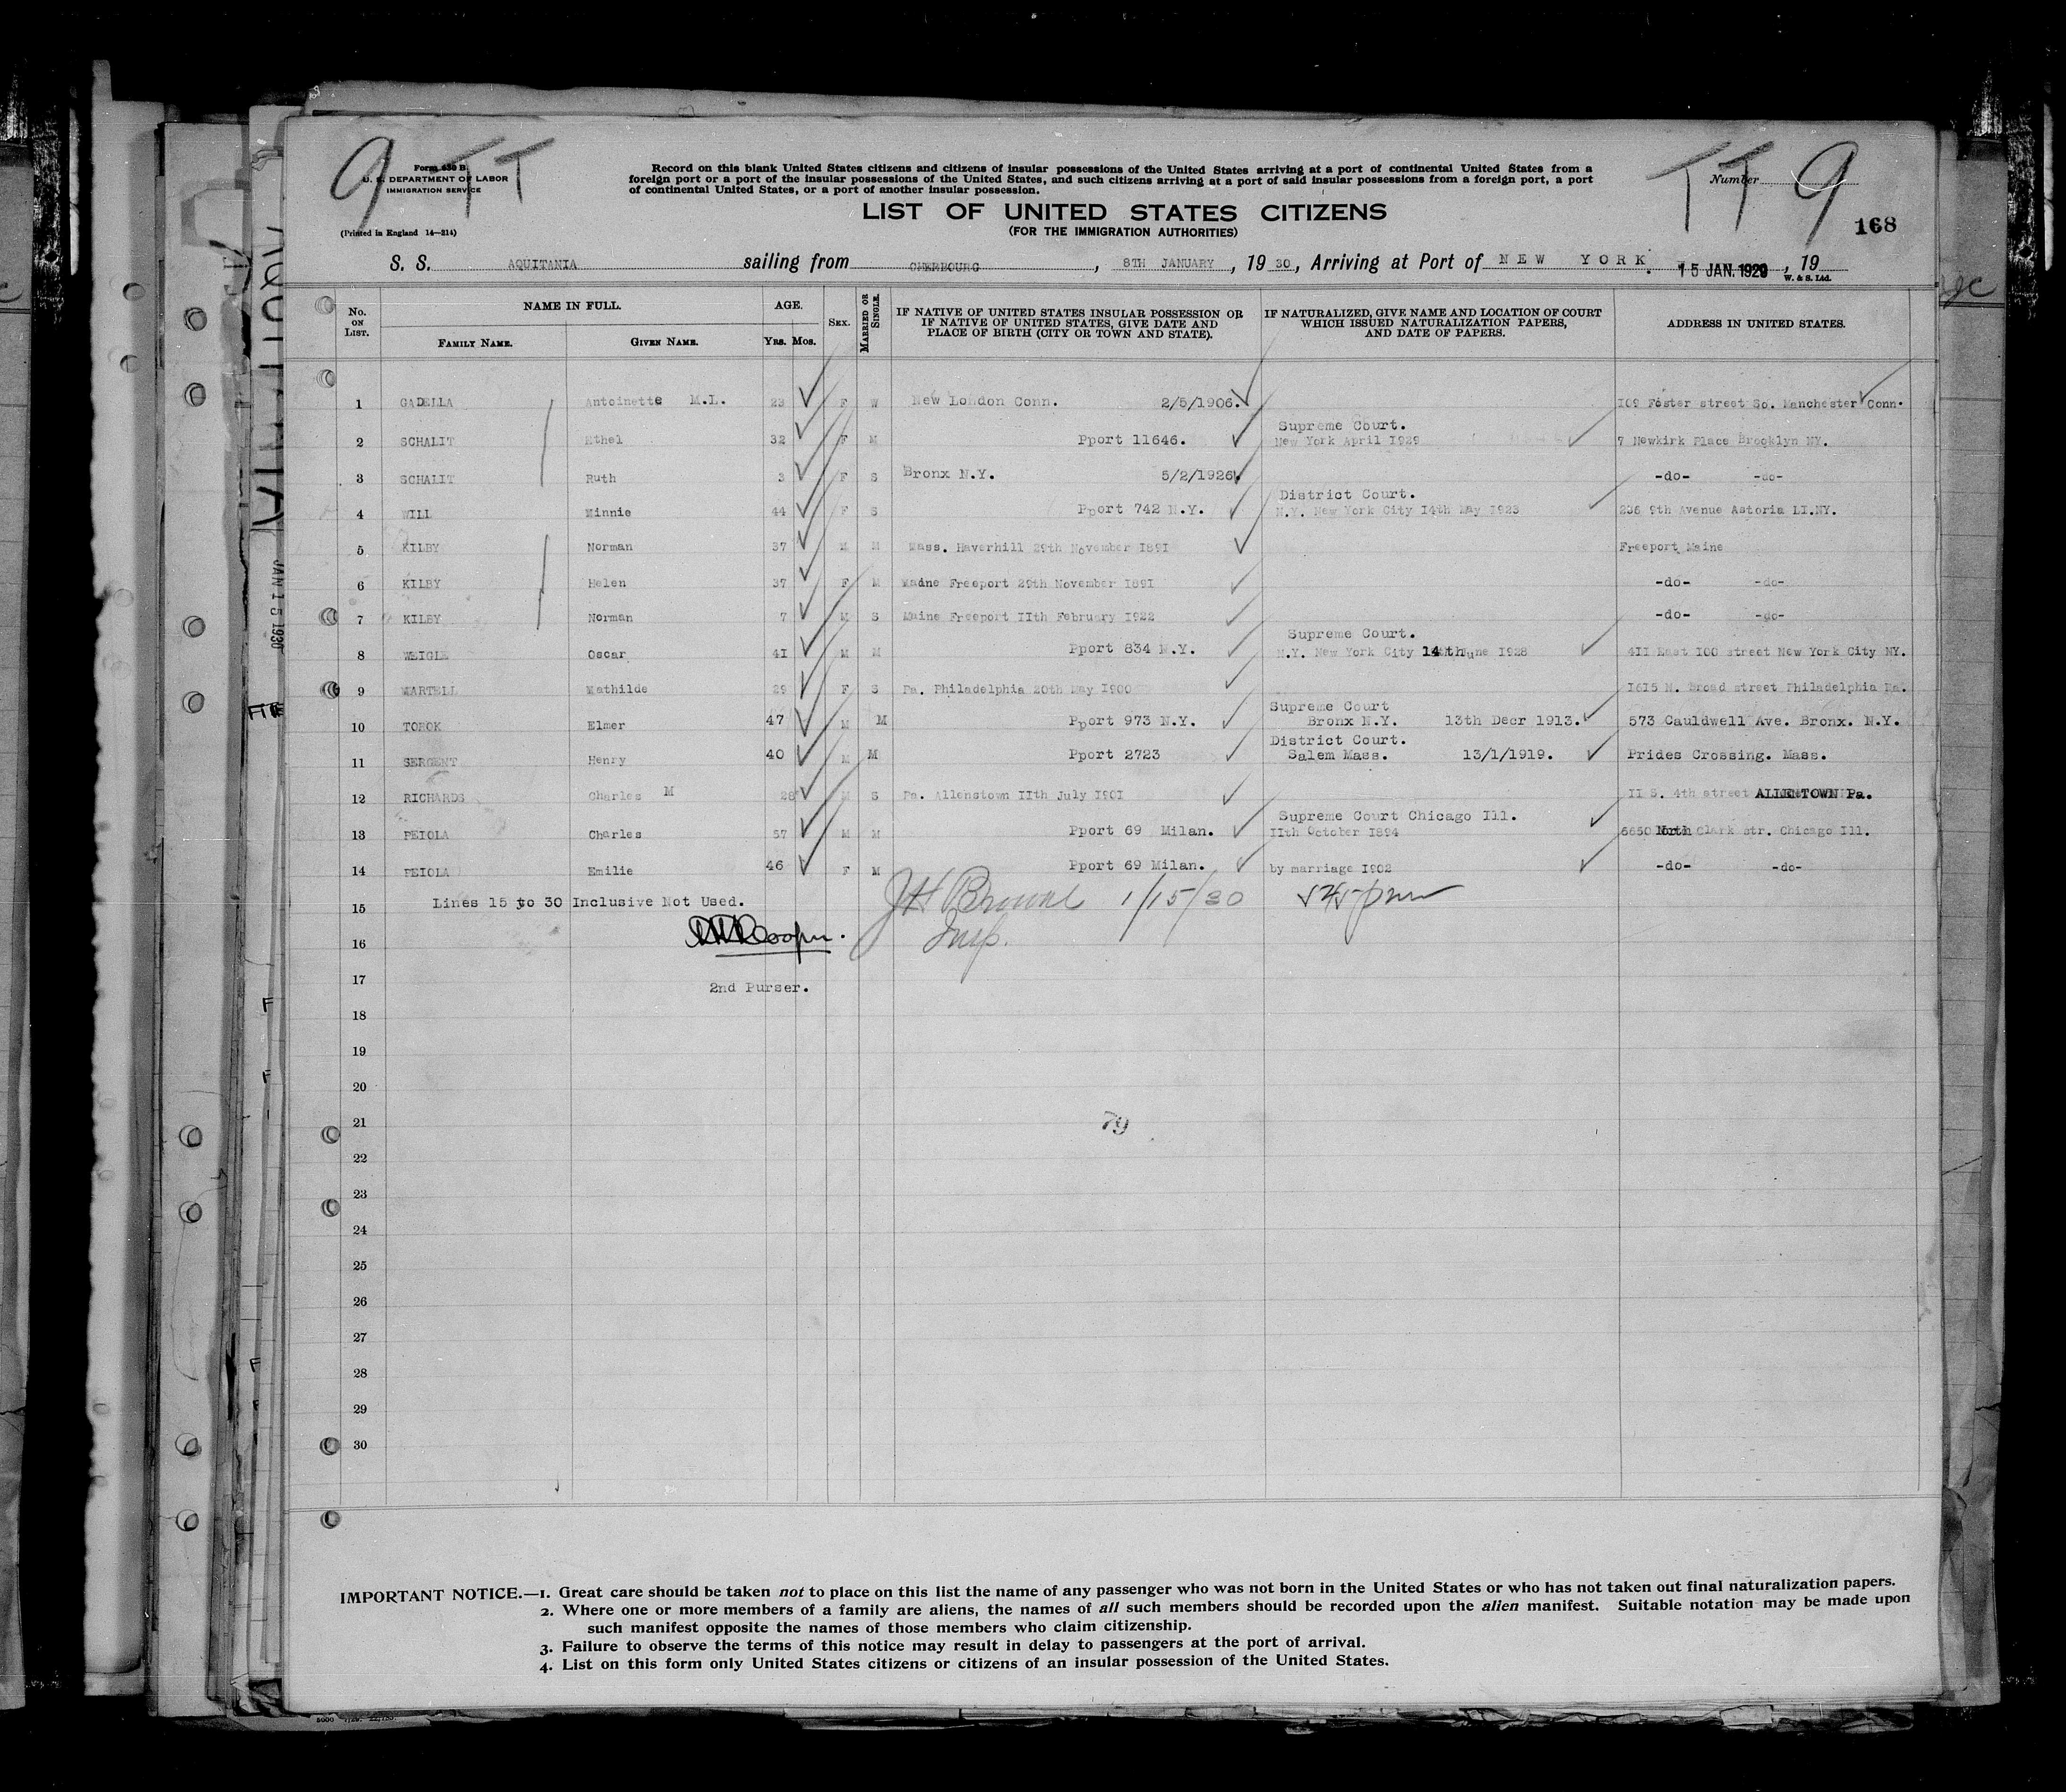 9 TT
Form 630 B
U. S. DEPARTMENT OF LABOR
IMMIGRATION SERVICE
(Printed in England 14—214)
Record on this blank United States citizens and citizens of insular possessions of the United States arriving at a port of continental United States from a
foreign port or a port of the insular possessions of the United States, and such citizens arriving at a port of said insular possessions from a foreign port, a port
of continental United States, or a port of another insular possession.
Number
TT 9
168
LIST OF UNITED STATES CITIZENS
(FOR THE IMMIGRATION AUTHORITIES)
S. S. AQUITANIA sailing from CHERBOURG, 8TH JANUARY, 19 30, Arriving at Port of NEW YORK. 15 JAN. 1929, 19
W. & S. Ltd.
No. ON LIST. NAME IN FULL. FAMILY NAME. GIVEN NAME. AGE. Yrs. Mos. SEX. MARRIED OR SINGLE. IF NATIVE OF UNITED STATES INSULAR POSSESSION OR IF NATIVE OF UNITED STATES, GIVE DATE AND PLACE OF BIRTH (CITY OR TOWN AND STATE). IF NATURALIZED, GIVE NAME AND LOCATION OF COURT WHICH ISSUED NATURALIZATION PAPERS, AND DATE OF PAPERS. ADDRESS IN UNITED STATES.
1 GADELLA Antoinette M.L. 23 F W New London Conn. 2/5/1906. 109 Foster street So. Manchester Conn.
Supreme Court.
2 SCHALIT Ethel 32 F M Pport 11646. New York April I929 7 Newkirk Place Brooklyn NY.
3 SCHALIT Ruth 3 F S Bronx N.Y. 5/2/1926 -do- -do-
District Court.
4 WILL Minnie 44 F S Pport 742 N.Y. N.Y. New York City I4th May I923 236 9th Avenue Astoria LI.NY.
5 KILBY Norman 37 M M Mass. Haverhill 29th November I89I Freeport Maine
6 KILBY Helen 37 F M Maine Freeport 29th November I89I -do- -do-
7 KILBY Norman 7 M S Maine Freeport IIth February I922 -do- -do-
Supreme Court.
8 WEIGLE Oscar 4I M M Pport 834 N.Y. N.Y. New York City 14th June I928 4II East I00 street New York City NY.
9 MARTELL Mathilde 29 F S Pa. Philadelphia 20th May I900 I6I5 N. Broad street Philadelphia Pa.
Supreme Court
10 TOROK Elmer 47 M M Pport 973 N.Y. Bronx N.Y. 13th Decr 1913. 573 Cauldwell Ave. Bronx. N.Y.
District Court.
11 SERGENT Henry 40 M M Pport 2723 Salem Mass. 13/1/1919. Prides Crossing. Mass.
12 RICHARDS Charles M 28 M S Pa. Allenstown IIth July I90I II S. 4th street ALLENTOWN Pa.
Supreme Court Chicago Ill.
13 PEIOLA Charles 57 M M Pport 69 Milan. IIth October I894 6650 North Clark str. Chicago Ill.
14 PEIOLA Emilie 46 F M Pport 69 Milan. by marriage I902 -do- -do-
15 Lines 15 to 30 Inclusive Not Used. JH Browne 1/15/30
16 Cooper. Insp.
17
2nd Purser.
18
19
20
21 79
22
23
24
25
26
27
28
29
30
IMPORTANT NOTICE.—1. Great care should be taken not to place on this list the name of any passenger who was not born in the United States or who has not taken out final naturalization papers.
2. Where one or more members of a family are aliens, the names of all such members should be recorded upon the alien manifest. Suitable notation may be made upon
such manifest opposite the names of those members who claim citizenship.
3. Failure to observe the terms of this notice may result in delay to passengers at the port of arrival.
4. List on this form only United States citizens or citizens of an insular possession of the United States.
JAN 15 1930